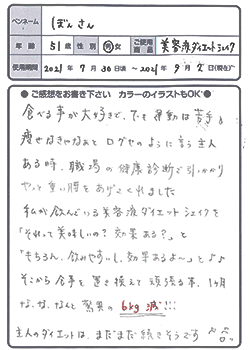 ペンネーム しぼんさん
年齢 51歳 性別 男・女 ご使用商品 美容液ダイエットシェイク
使用期間 2021年7月30日頃〜2021年9月2日(現在)
●ご感想をお書き下さい カラーのイラストもOK●
食べる事が大好きで、でも運動は苦手。
痩せなきゃなぁとログセのように言う主人
ある時、職場の健康診断で引っかかり
やっと重い腰をあげてくれました
私が飲んでいる美容液ダイエットシェイクを
「それって美味しいの? 効果ある?」と
「もちろん、飲みやすいし、効果あるよ〜」とよ♪
そこから食事を置き換えて頑張る事、1ヶ月
な、な、なんと驚異の6kg減!!!
主人のダイエットは、まだまだ続きそうです